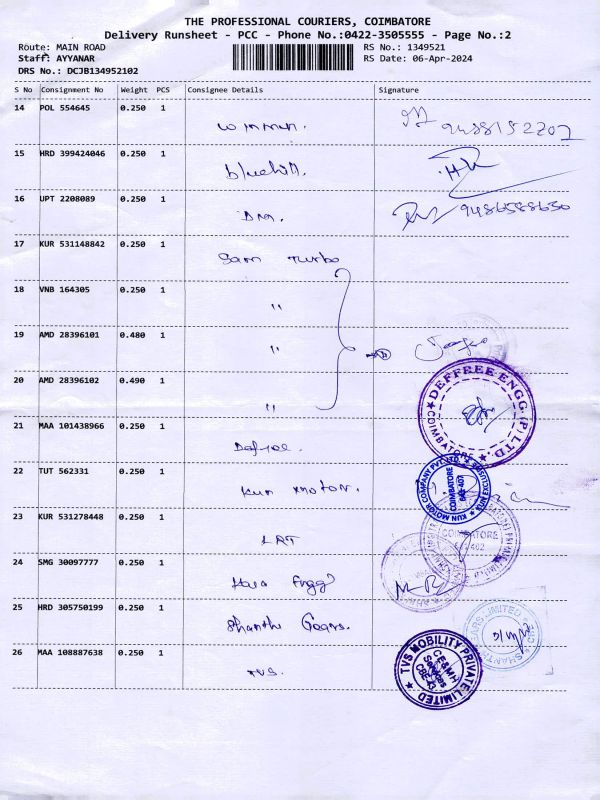 THE PROFESSIONAL COURIERS, COIMBATORE
Delivery Runsheet - PCC - Phone No.:0422-3505555 - Page No.:2
Route: MAIN ROAD RS No.: 1349521
Staff: AYYANAR RS Date: 06-Apr-2024
DRS No.: DCJB134952102
S No Consignment No Weight PCS Consignee Details Signature
14 POL 554645 0.250 1
9488152207
15 HRD 399424046 0.250 1
bluehill.
16 UPT 2208089 0.250 1
DM. 9486588630
17 KUR 531148842 0.250 1
Sam Turbo
18 VNB 164305 0.250 1
"
19 AMD 28396101 0.480 1
"
20 AMD 28396102 0.490 1
"
DEFFREE ENGG. (P) LTD.
COIMBATORE
21 MAA 101438966 0.250 1
22 TUT 562331 0.250 1
Kun motor.
KUN MOTOR COMPANY PVT. LTD.
COIMBATORE
23 KUR 531278448 0.250 1
LRT
24 SMG 30097777 0.250 1
Hara Engg
25 HRD 305750199 0.250 1
Shanthi Gears.
26 MAA 108887638 0.250 1
TVS.
TVS MOBILITY PRIVATE LIMITED
CE&MH
Services
CBE-43